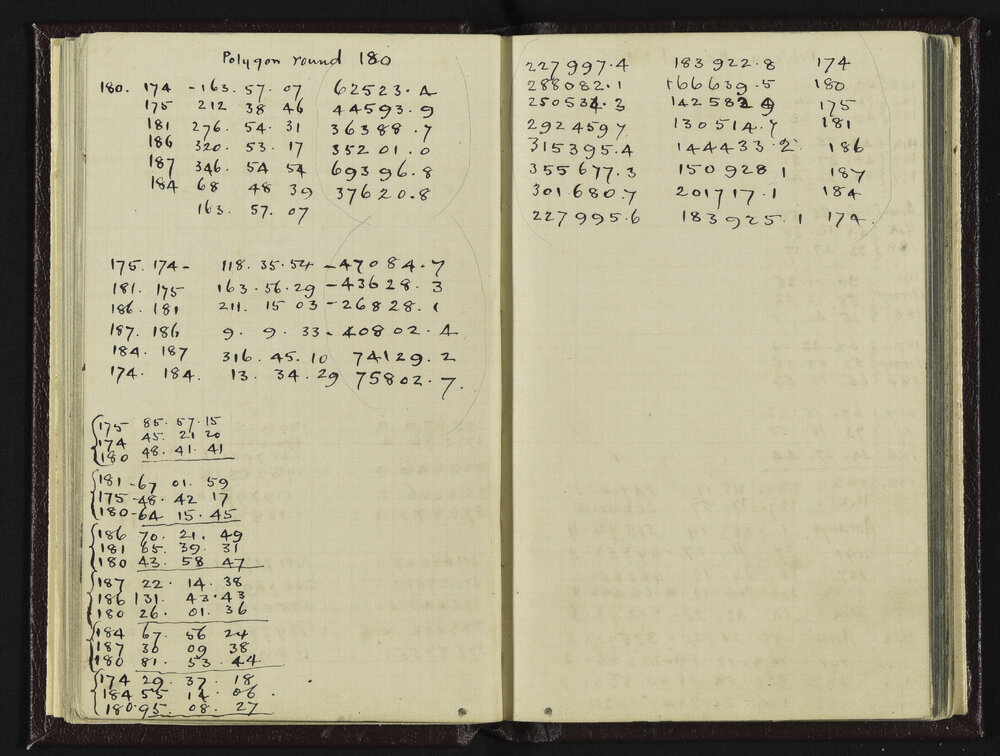 Polygon round 180
180. 174 - 163. 57. 07 62523.4
175 212 38 46 44593.9
181 276. 54. 31 36388.7
186 320. 53. 17 35201.0
187 346. 54 54 69396.8
184 68 48 39 37620.8
163. 57. 07
175. 174 - 118. 35. 54 - 47084.7
181. 175 163. 56. 29 - 43628.3
186. 181 211. 15 03 - 26828.1
187. 186 9. 9. 33 - 40802.4
184. 187 316. 45. 10 74129.2
174. 184. 13. 34. 29 75802.7.
175 85. 57. 15
174 45. 21 20
180 48. 41. 41
181 - 67 01. 59
175 - 48. 42 17
180 - 64 15. 45
186 70. 21. 49
181 65. 39. 31
180 43. 58 47
187 22. 14. 38
186 131. 43. 43
180 26. 01. 36
184 67. 56 24
187 30 09 38
180 81. 53. 44
174 29. 37. 18
184 55 14. 06.
180. 95. 08. 27
227997.4 183922.8 174
288082.1 166639.5 180
250534.3 142582.9 175
292459 7 130514.7 181
315395.4 144433.2 186
355677.3 150928 1 187
301680.7 201717.1 184
227995.6 183925.1 174.